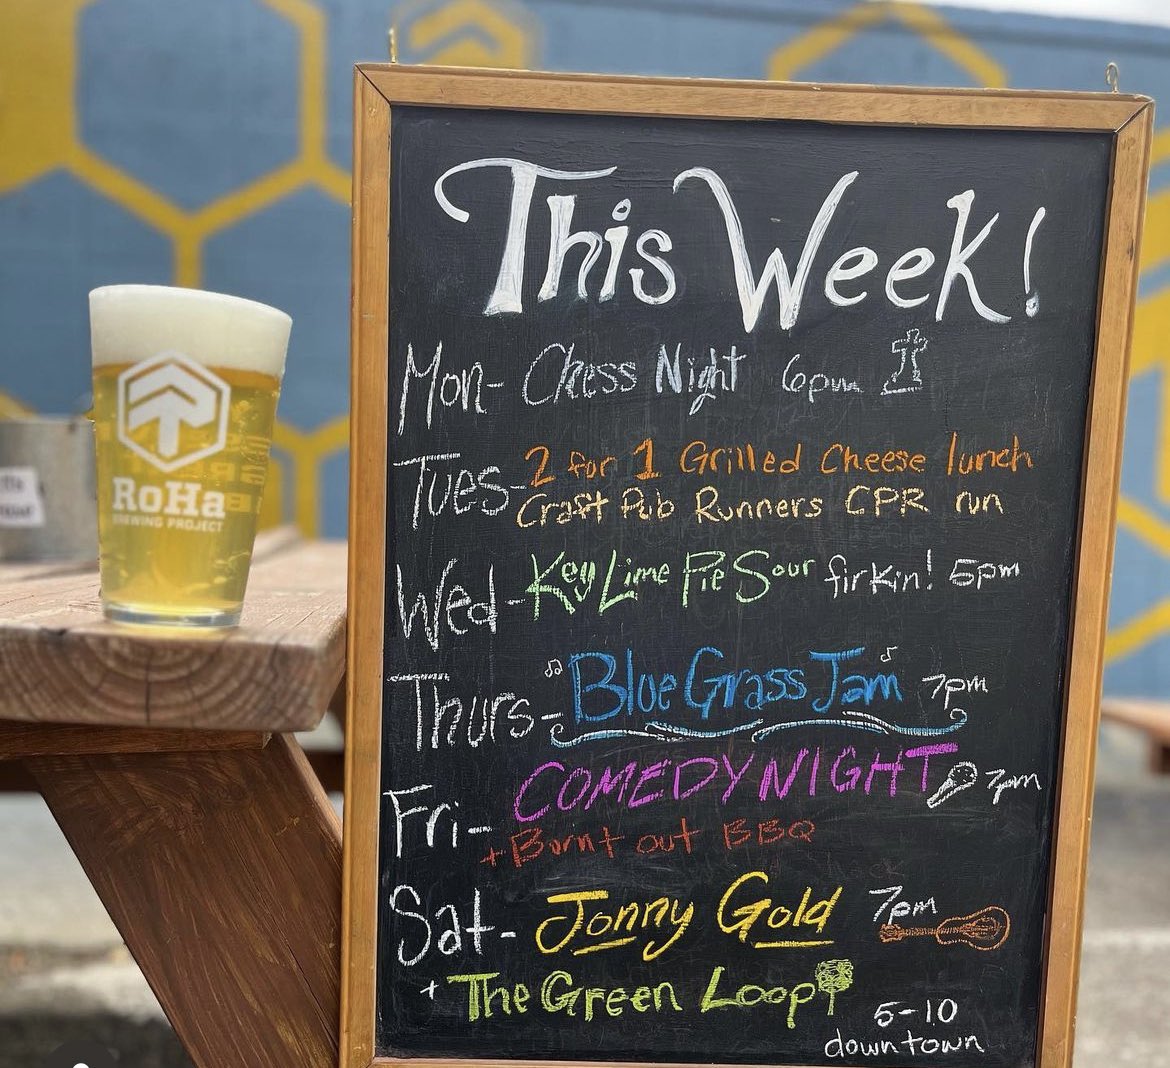 This Week!
Mon- Chess Night 6pm
Tues- 2 for 1 Grilled Cheese lunch
Craft Pub Runners CPR run
Wed- Key Lime Pie Sour firkin! 5pm
Thurs- BlueGrass Jam 7pm
Fri- COMEDY NIGHT 7pm
+ Burnt out BBQ
Sat- Jonny Gold 7pm
+ The Green Loop
5-10
downtown
RoHa
BREWING PROJECT